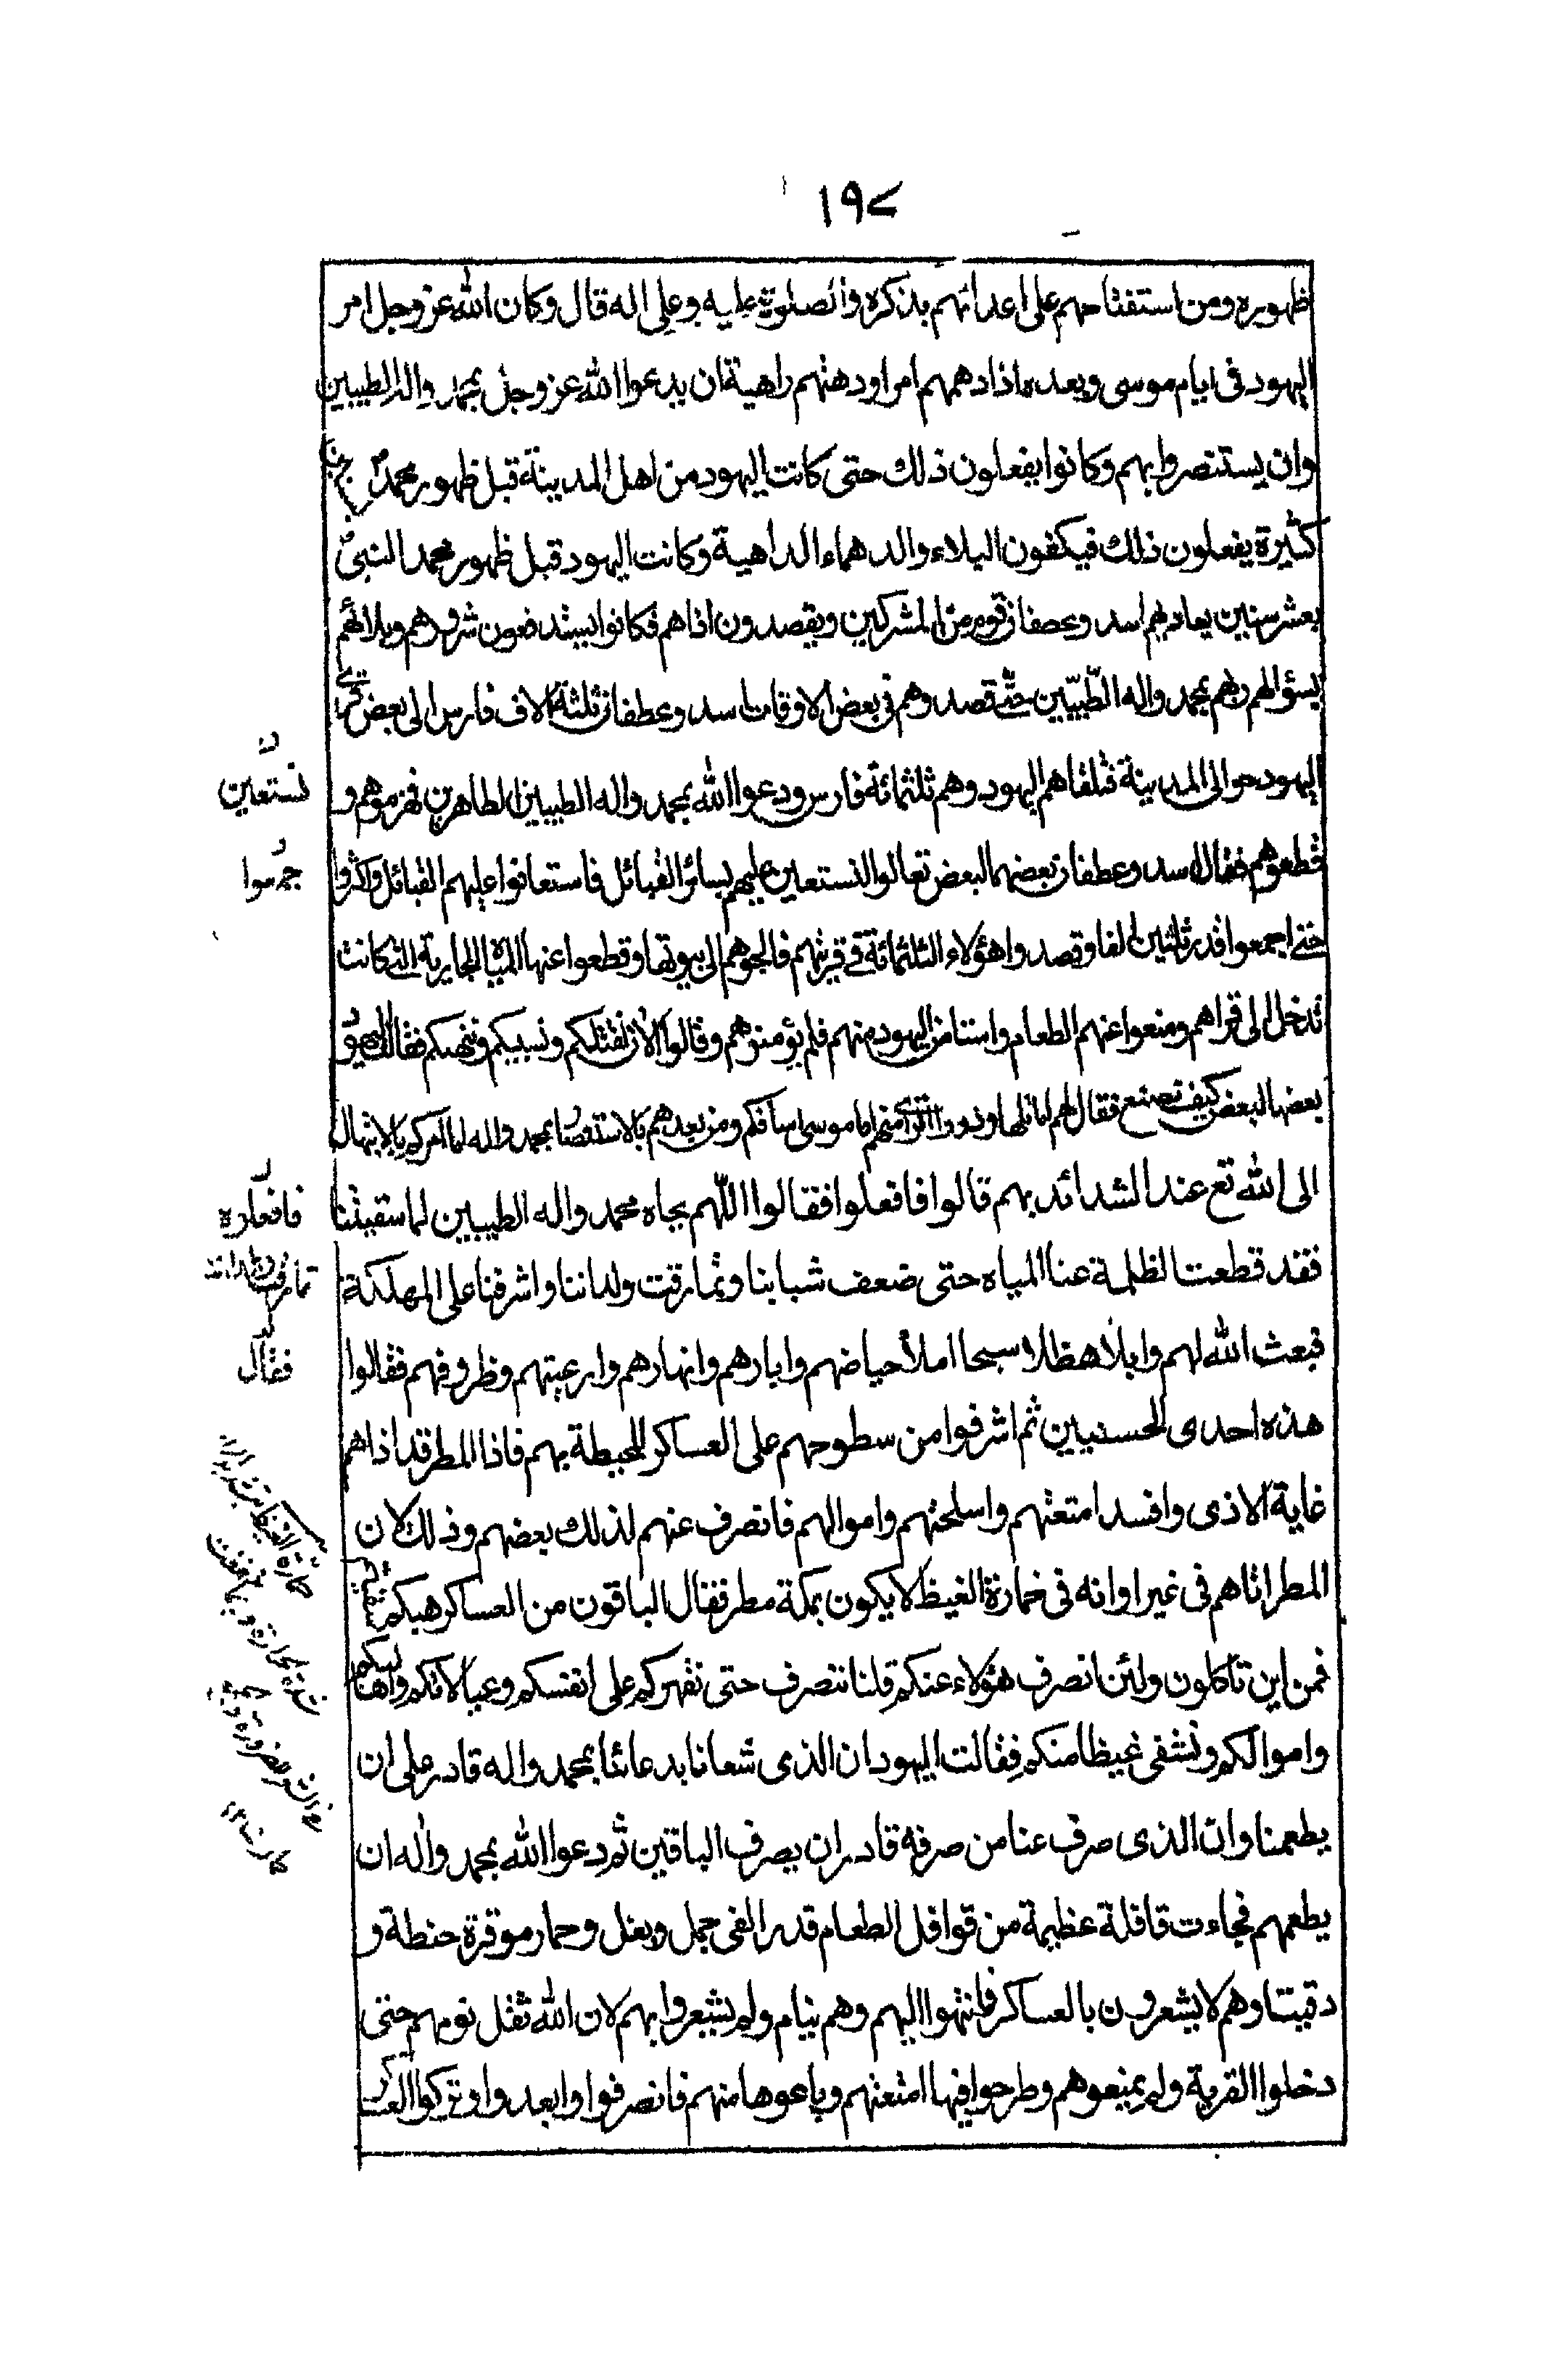 ١٩٧
ظهوره ومن استفتاحهم على اعدائهم بذكره والصلوة عليه وعلى اله قال وكان الله عز وجل امر
اليهود فى ايام موسى وبعده اذا دهمهم امر اودهتهم داهية ان يدعوا الله عز وجل بمحمد واله الطيبين
وان يستنصروا بهم وكانوا يفعلون ذلك حتى كانت اليهود من اهل المدينة قبل ظهور محمد ص
كثيرة يفعلون ذلك فيكفون البلاء والدهماء الداهية وكانت اليهود قبل ظهور محمد النبى ص
بعشر سنين يعاديهم اسد وعصفان قوم من المشركين ويقصدون اذاهم فكانوا يستدفعون شرورهم وبلائهم
بسؤالهم ربهم بمحمد واله الطّيّبين حتّى قصدوهم فى بعض الاوقات اسد وعطفان ثلثة الاف فارس الى بعض قرى
اليهود حوالى المدينة فتلقاهم اليهود وهم ثلثمائة فارس ودعوا الله بمحمد واله الطيبين الطاهرين فهزموهم و
قطعوهم فقال اسد وعطفان بعضهما لبعض تعالوا لنستعين عليهم بسائر القبائل فاستعانوا عليهم القبائل واكثروا
حتى اجمعوا قدر ثلثين الفا وقصدوا هؤلاء الثلثمائة فى قريتهم فالجؤهم الى بيوتها وقطعوا عنها المياه الجارية التى كانت
تدخل الى قراهم ومنعوا عنهم الطعام واستامن اليهود منهم فلم يؤمنوهم وقالوا الا ان نقتلكم ونسبيكم وننهبكم فقالت اليهود
بعضها لبعض كيف نصنع فقال لهم اماثلها وذووا الراى منهم اما موسى اسلافكم ومن بعدهم بالاستنصار بمحمد واله اما امركم بالابتهال
الى الله تع عند الشدائد بهم قالوا فافعلوا فقالوا اللّهم بجاه محمد واله الطيبين لما سقيتنا
فقد قطعت الظلمة عنا المياه حتى ضعف شبابنا وتمارقت ولداننا واشرفنا على المهلكة
فبعث الله لهم وابلا هظلا سبحا املأ حياضهم وابارهم وانهارهم واوعيتهم وظروفهم فقالوا
هذه احدى الحسنيين ثم اشرفوا من سطوحهم على العساكر المحيطة بهم فاذا المطر قد اذاهم
غاية الاذى وافسد امتعتهم واسلحتهم واموالهم فانصرف عنهم لذلك بعضهم وذلك لان
المطر اتاهم فى غير اوانه فى حمارة الغيظ لا يكون بمكة مطر فقال الباقون من العساكر هبكم سقيتم
فمن اين تاكلون ولئن انصرف هؤلاء عنكم فلنا ننصرف حتى نقهركم على انفسكم وعيالاتكم واهاليكم
واموالكم ونشفى غيظا منكم فقالت اليهود ان الذى سقانا بدعائنا بمحمد واله قادر على ان
يطعمنا وان الذى صرف عنا من صرفه قادر ان يصرف الباقين ثم دعوا الله بمحمد واله ان
يطعمهم فجاءت قافلة عظيمة من قوافل الطعام قدر الفى جمل وبغل وحمار موقرة حنطة و
دقيقا وهم لا يشعرون بالعساكر فانتهوا اليهم وهم نيام ولم يشعروا بهم لان الله ثقل نومهم حتى
دخلوا القرية ولم يمنعوهم وطرحوا فيها امتعتهم وباعوها منهم فانصرفوا وابعدوا وتركوا العساكر
نستعين
جمعوا
فافعلوه
فقال